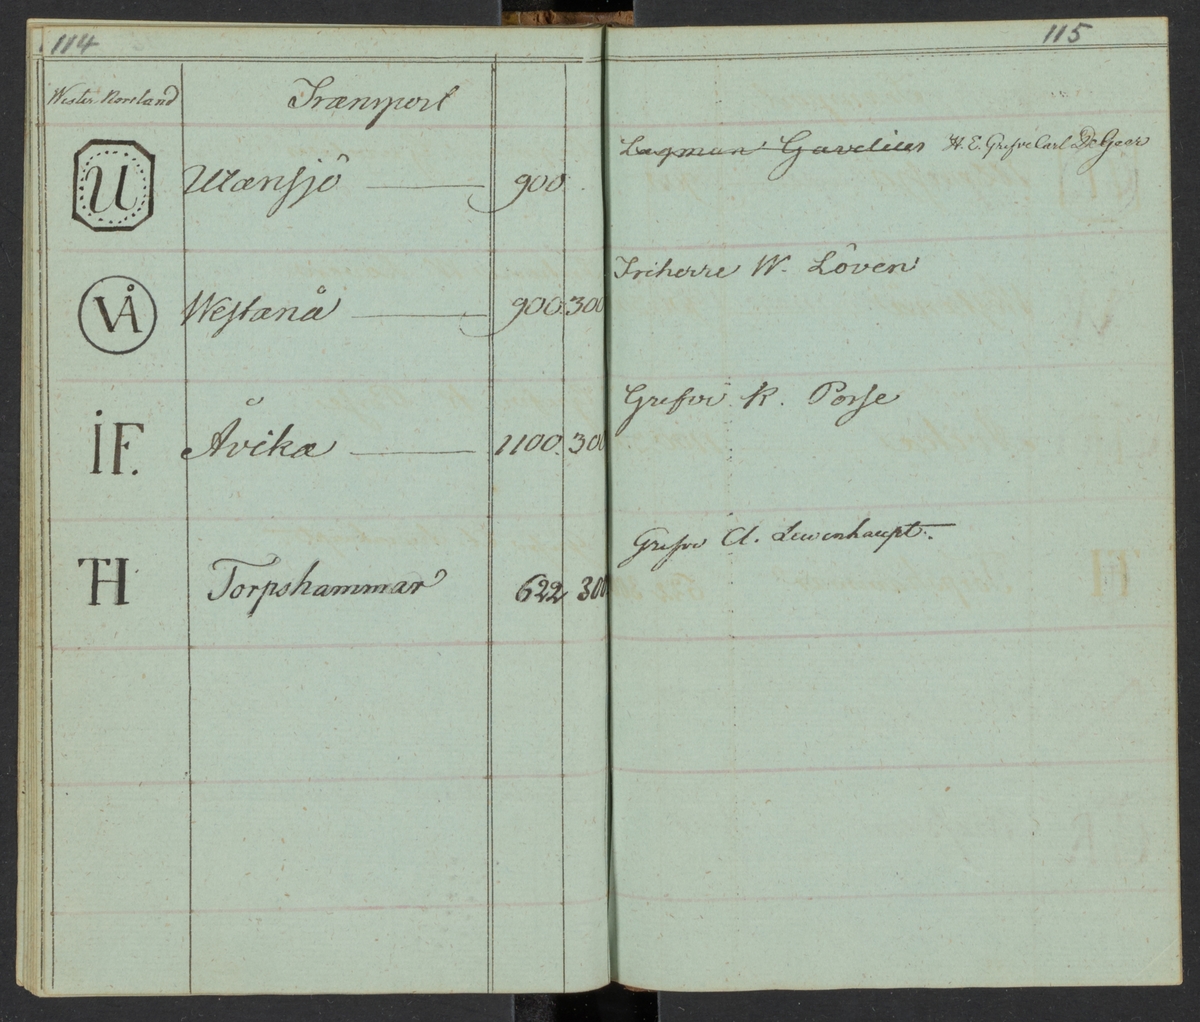 114
115
Wester Norrland
Transport
U
Utansjö 900
Lagman Gavelius H. E. Grefve Carl De Geer
VÅ
Westanå 900 300
Friherre W. Löven
İF.
Åvika 1100. 300
Grefve K. Posse
TH
Torpshammar 622 300
Grefve Cl. Lewenhaupt.